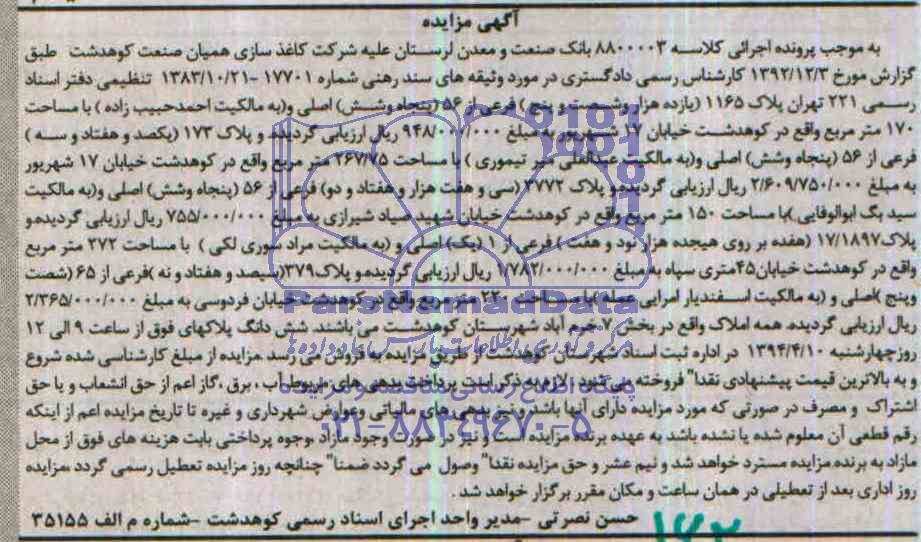 آگهی مزایده
به موجب پرونده اجرائی کلاسه ۸۸۰۰۰۰۳ بانک صنعت و معدن لرستان علیه شرکت کاغذ سازی همیان صنعت کوهدشت طبق
گزارش مورخ ۱۳۹۲/۱۲/۳ کارشناس رسمی دادگستری در مورد وثیقه های سند رهنی شماره ۱۷۷۰۱ -۱۳۸۳/۱۰/۲۱ تنظیمی دفتر اسناد
رسمی ۲۲۱ تهران پلاک ۱۱۶۵ (یازده هزار وشصت و پنج) فرعی از ۵۶ (پنجاه وشش) اصلی و(به مالکیت احمدحبیب زاده ) با مساحت
۱۷۰ متر مربع واقع در کوهدشت خیابان ۱۷ شهریور به مبلغ ۹۴۸/۰۰۰/۰۰۰ ریال ارزیابی گردیده و پلاک ۱۷۳ (یکصد و هفتاد و سه )
فرعی از ۵۶ (پنجاه وشش) اصلی و(به مالکیت عبدالعلی میر تیموری ) با مساحت ۲۶۷/۷۵ متر مربع واقع در کوهدشت خیابان ۱۷ شهریور
به مبلغ ۲/۶۰۹/۷۵۰/۰۰۰ ریال ارزیابی گردیده و پلاک ۳۷۷۲ (سی و هفت هزار و هفتاد و دو) فرعی از ۵۶ (پنجاه وشش) اصلی و(به مالکیت
سید بگ ابوالوفایی )با مساحت ۱۵۰ متر مربع واقع در کوهدشت خیابان شهید صیاد شیرازی به مبلغ ۷۵۵/۰۰۰/۰۰۰ ریال ارزیابی گردیده و
پلاک۱۷/۱۸۹۷ (هفده بر روی هیجده هزار نود و هفت ) فرعی از ۱ (یک) اصلی و (به مالکیت مراد سوری لکی ) با مساحت ۲۷۲ متر مربع
واقع در کوهدشت خیابان۴۵متری سپاه به مبلغ ۱/۷۸۲/۰۰۰/۰۰۰ ریال ارزیابی گردیده و پلاک۳۷۹(سیصد و هفتاد و نه )فرعی از ۶۵ (شصت
وپنج )اصلی و (به مالکیت اسفندیار امرایی عمله )با مساحت ۲۲۰ متر مربع واقع در کوهدشت خیابان فردوسی به مبلغ ۲/۳۶۵/۰۰۰/۰۰۰
ریال ارزیابی گردیده. همه املاک واقع در بخش ۷ خرم آباد شهرستان کوهدشت می باشند. شش دانگ پلاکهای فوق از ساعت ۹ الی ۱۲
روزچهارشنبه ۱۳۹۴/۴/۱۰ در اداره ثبت اسناد شهرستان کوهدشت از طریق مزایده به فروش می رسد .مزایده از مبلغ کارشناسی شده شروع
و به بالاترین قیمت پیشنهادی نقدا" فروخته می شود . لازم به ذکر است پرداخت بدهی های مربوط آب ، برق ،گاز اعم از حق انشعاب و یا حق
اشتراک و مصرف در صورتی که مورد مزایده دارای آنها باشد و نیز بدهی های مالیاتی وعوارض شهرداری و غیره تا تاریخ مزایده اعم از اینکه
رقم قطعی آن معلوم شده یا نشده باشد به عهده برنده مزایده است و نیز در صورت وجود مازاد ,وجوه پرداختی بابت هزینه های فوق از محل
مازاد به برنده مزایده مسترد خواهد شد و نیم عشر و حق مزایده نقدا" وصول می گردد ضمنا" چنانچه روز مزایده تعطیل رسمی گردد ,مزایده
روز اداری بعد از تعطیلی در همان ساعت و مکان مقرر برگزار خواهد شد .
حسن نصرتی -مدیر واحد اجرای اسناد رسمی کوهدشت -شماره م الف ۳۵۱۵۵
ParsNamadData
۰۲۱-۸۸۳۴۹۶۷۰-۵
۱۷۳